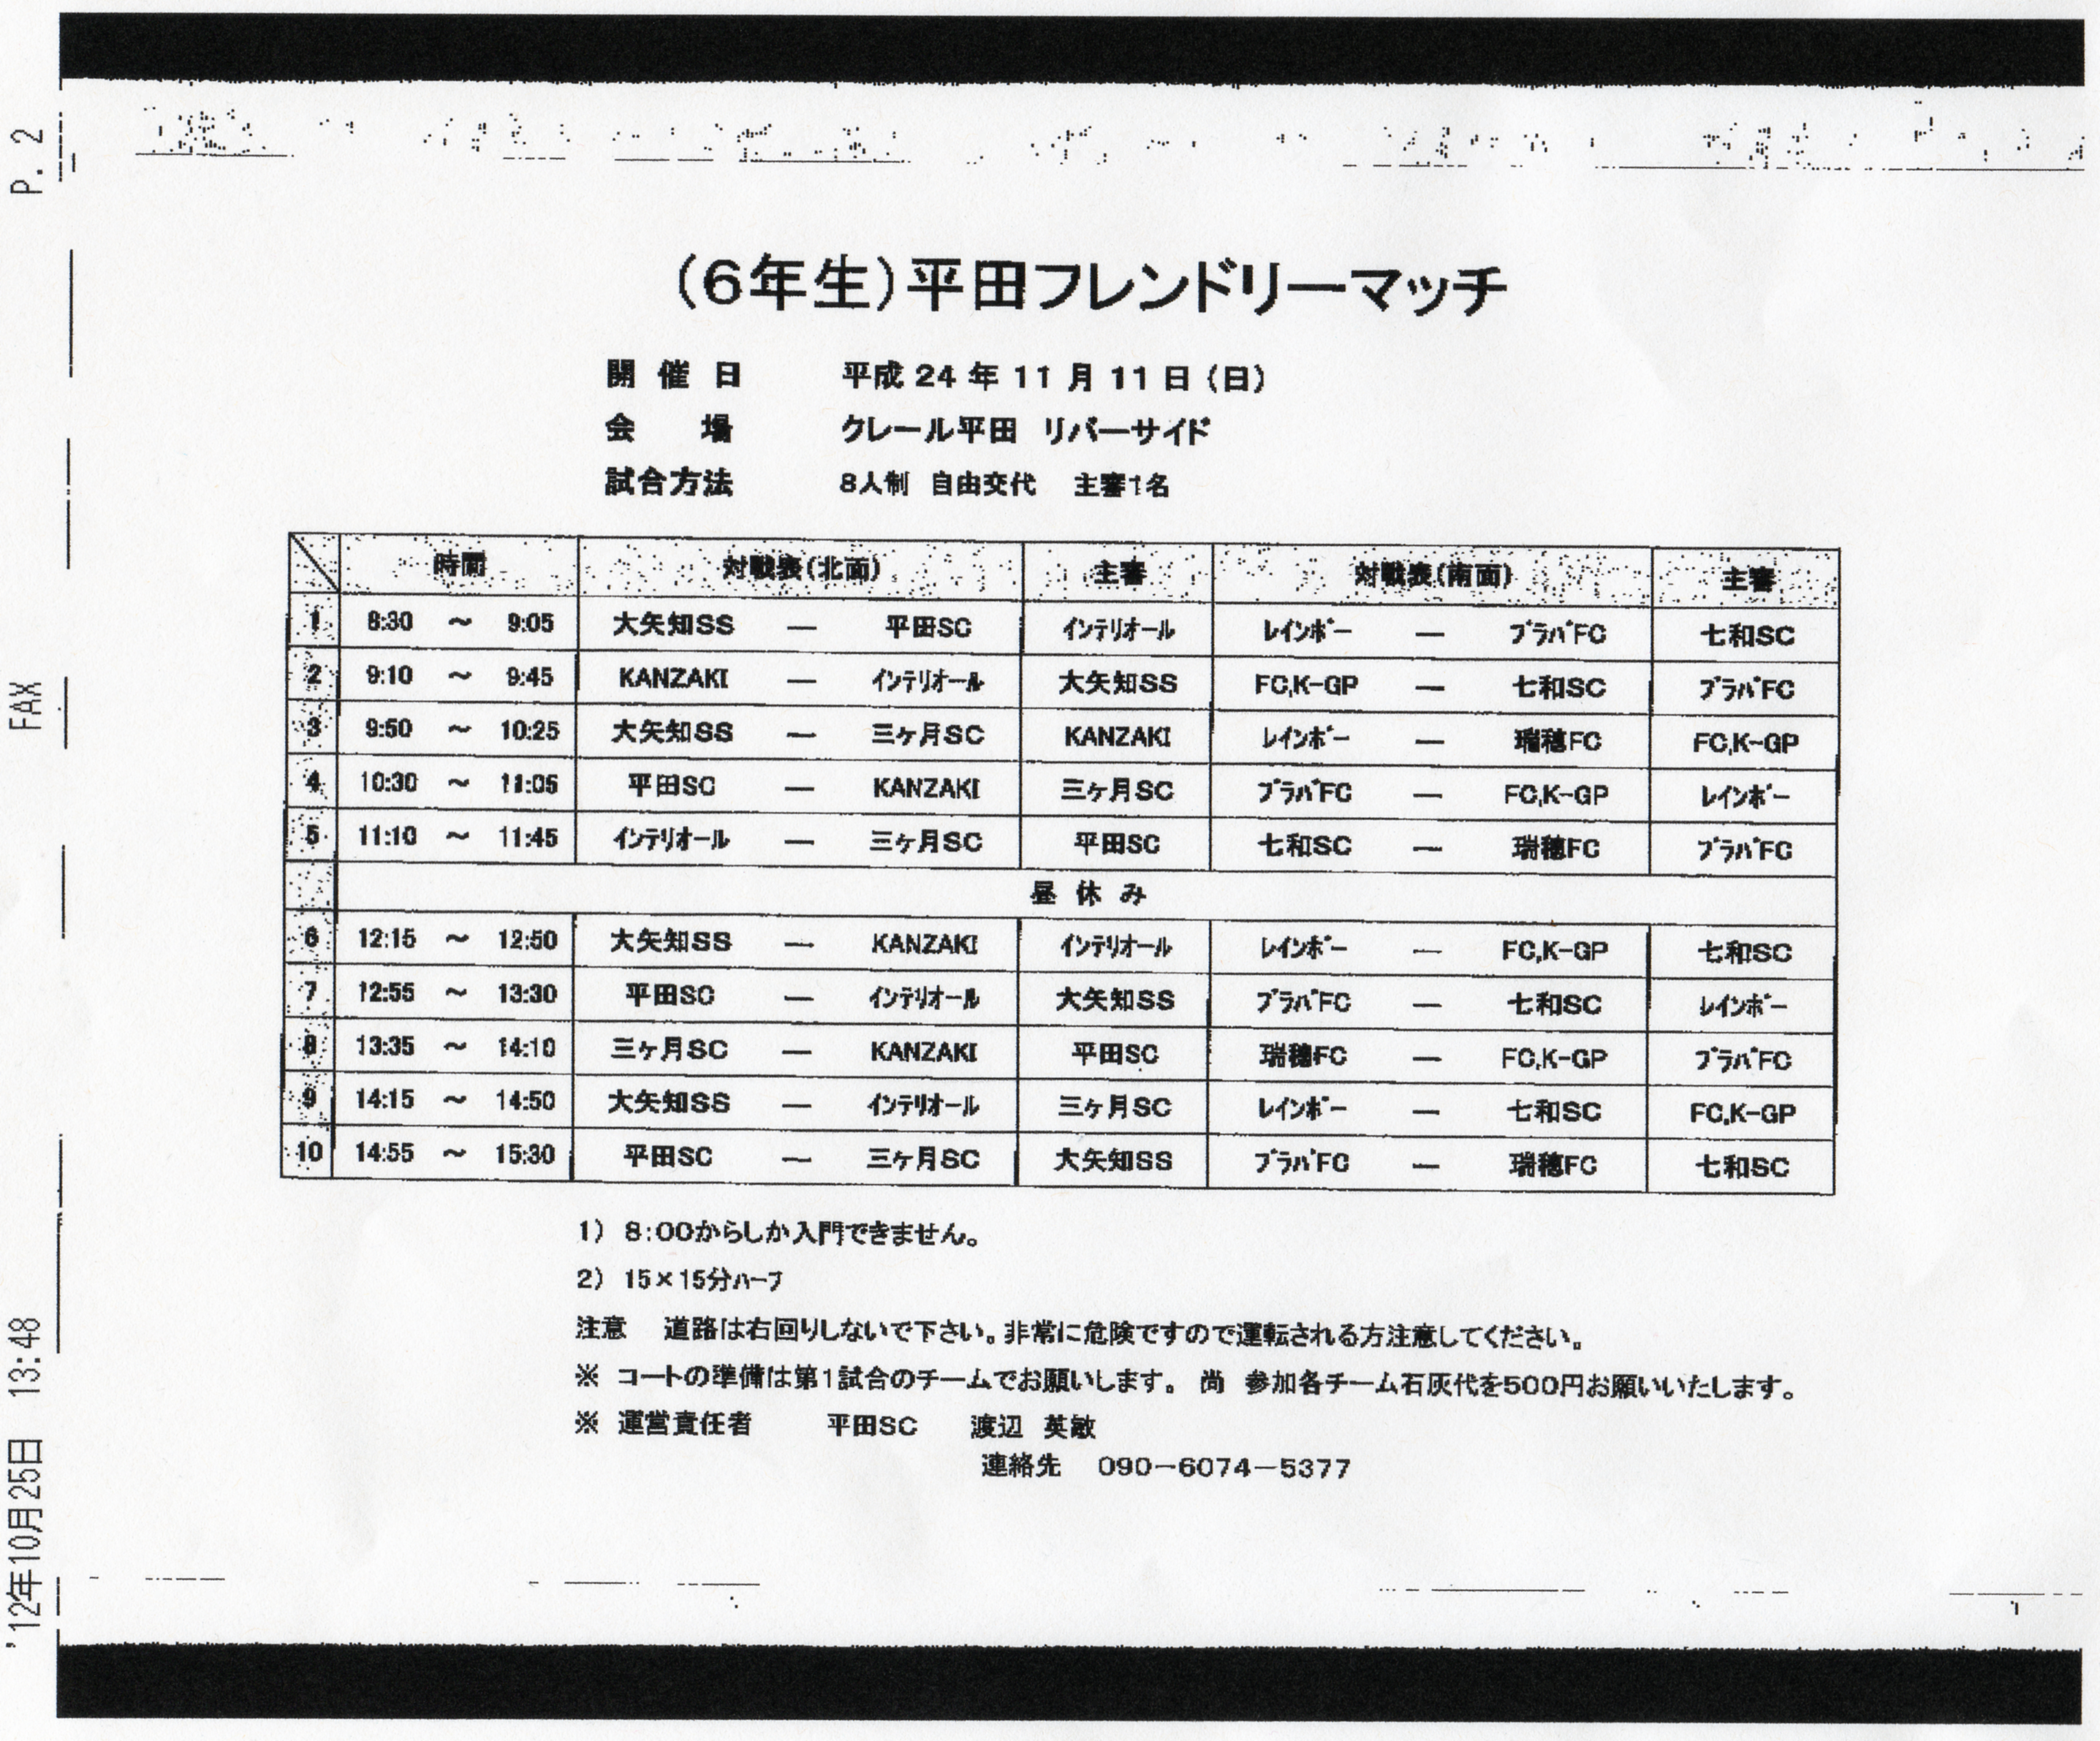 P. 2
FAX
'12年10月25日 13:48
(6年生)平田フレンドリーマッチ
開催日 平成24年11月11日(日)
会場 クレール平田 リバーサイド
試合方法 8人制 自由交代 主審1名
時間 対戦表(北面) 主審 対戦表(南面) 主審
1 8:30 ～ 9:05 大矢知SS — 平田SC インテリオール レインボー — ブラバFC 七和SC
2 9:10 ～ 9:45 KANZAKI — インテリオール 大矢知SS FC,K-GP — 七和SC ブラバFC
3 9:50 ～ 10:25 大矢知SS — 三ヶ月SC KANZAKI レインボー — 瑞穂FC FC,K-GP
4 10:30 ～ 11:05 平田SC — KANZAKI 三ヶ月SC ブラバFC — FC,K-GP レインボー
5 11:10 ～ 11:45 インテリオール — 三ヶ月SC 平田SC 七和SC — 瑞穂FC ブラバFC
昼休み
6 12:15 ～ 12:50 大矢知SS — KANZAKI インテリオール レインボー — FC,K-GP 七和SC
7 12:55 ～ 13:30 平田SC — インテリオール 大矢知SS ブラバFC — 七和SC レインボー
8 13:35 ～ 14:10 三ヶ月SC — KANZAKI 平田SC 瑞穂FC — FC,K-GP ブラバFC
9 14:15 ～ 14:50 大矢知SS — インテリオール 三ヶ月SC レインボー — 七和SC FC,K-GP
10 14:55 ～ 15:30 平田SC — 三ヶ月SC 大矢知SS ブラバFC — 瑞穂FC 七和SC
1) 8:00からしか入門できません。
2) 15×15分ハーフ
注意 道路は右回りしないで下さい。非常に危険ですので運転される方注意してください。
※ コートの準備は第1試合のチームでお願いします。 尚 参加各チーム石灰代を500円お願いいたします。
※ 運営責任者 平田SC 渡辺 英敏
連絡先 090-6074-5377